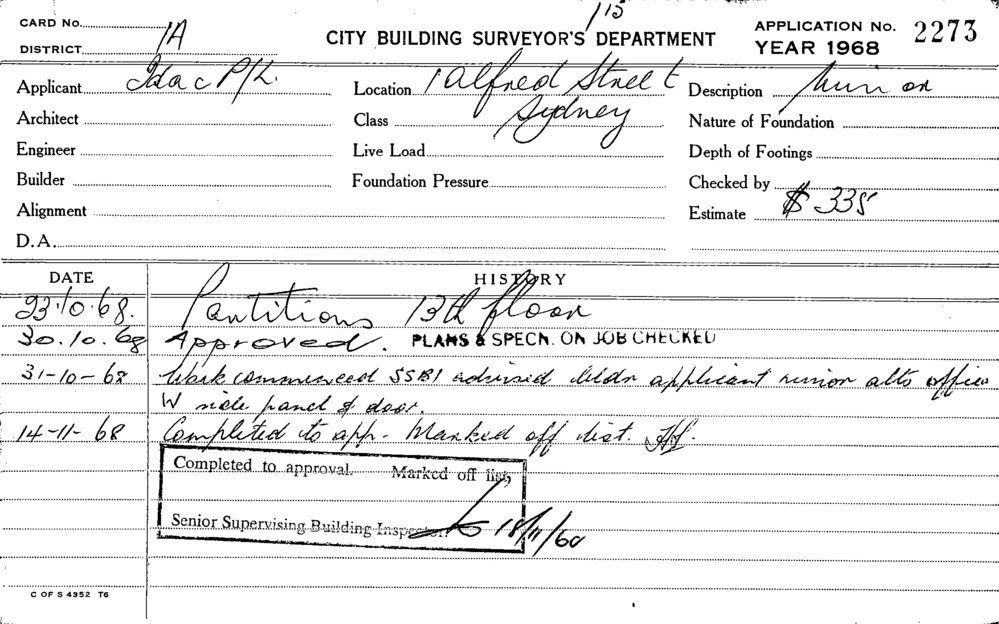 113
CARD No. 1A
DISTRICT
CITY BUILDING SURVEYOR'S DEPARTMENT
APPLICATION No. 2273
YEAR 1968
Applicant P/L.
Location 1 Alfred Street
Sydney
Description
Architect
Class
Nature of Foundation
Engineer
Live Load
Depth of Footings
Builder
Foundation Pressure
Checked by
Alignment
Estimate $ 338
D.A.
DATE HISTORY
23.10.68. Partitions 13th floor
30.10.68 Approved. PLANS & SPECN. ON JOB CHECKED
31-10-68 Work commenced SSBI advised bldr applicant minor alts office
W side panel & door.
14-11-68 Completed to app. - Marked off list.
Completed to approval. Marked off list,
Senior Supervising Building Inspector. 18/11/68
C OF S 4352 T6